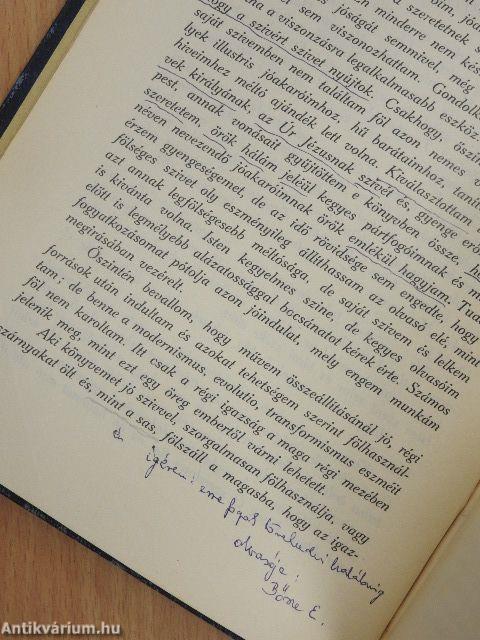 en minderre nem ké
a szeretetnek s
jóságát semmivel, még
sem viszonozhattam. Gondolk
a viszonzásra legalkalmasabb eszköz
hogy a szívért szívet nyújtok. Csakhogy, őszin
saját szívemben nem találtam föl azon nemes v
lyek illustris jóakaróimhoz, hű barátaimhoz, tanít
híveimhez méltó ajándék lett volna. Kiválasztottam
vek királyának, az Úr Jézusnak szívét és, gyenge erő
pest, annak vonásait gyűjtöttem e könyvben össze, h
szeretetem, örök hálám jeléül kegyes pártfogóimnak és m
néven nevezendő jóakaróimnak örök emlékül hagyjam. Tud
érzem gyengeségemet, de az idő rövidsége sem engedte, hogy
fölséges szívet oly eszményileg állíthassam az olvasó elé, mint
azt annak legfölségesebb méltósága, de saját szívem és lelkem
is kívánta volna. Isten kegyelmes színe, de kegyes olvasóim
előtt is legmélyebb alázatossággal bocsánatot kérek érte. Számos
fogyatkozásomat pótolja azon jóindulat, mely engem munkám
megírásában vezérelt.
Őszintén bevallom, hogy művem összeállításánál jó, régi
források után indultam és azokat tehetségem szerint fölhasznál-
tam; de benne a modernismus, evolutio, transformismus eszméit
föl nem karoltam. Itt csak a régi igazság a maga régi mezében
jelenik meg, mint ezt egy öreg embertől várni lehetett.
Aki könyvemet jó szívvel, szorgalmasan fölhasználja, vagy
szárnyakat ölt és, mint a sas, fölszáll a magasba, hogy az igaz-
én igérem! erre fogok törekedni halálomig
olvasója:
Böske E.
Antikvárium.hu